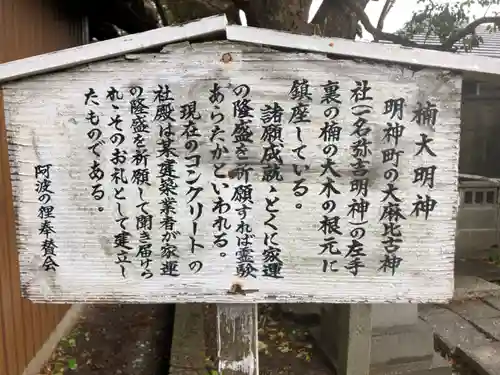 楠大明神
明神町の大麻比古神
社(一名弥吉明神)の左手
裏の楠の大木の根元に
鎮座している。
諸願成就、とくに家運
の隆盛を祈願すれば霊験
あらたかといわれる。
現在のコンクリートの
社殿は某建築業者が家運
の隆盛を祈願して聞き届けら
れ、そのお礼として建立し
たものである。
阿波の狸奉賛会